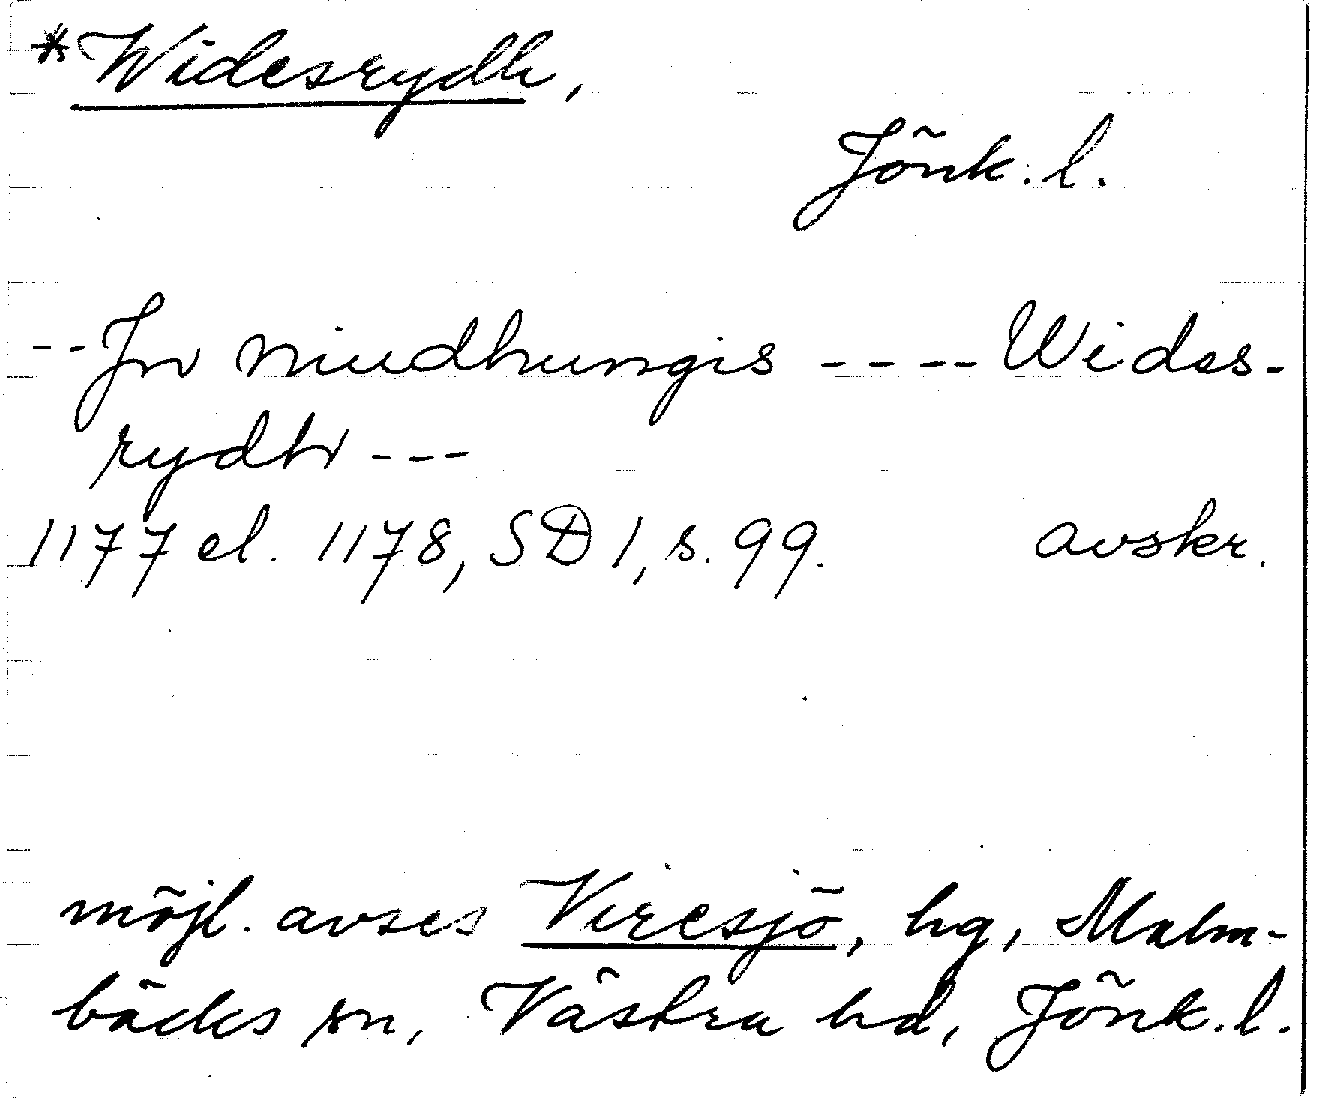 *Widesrydh,
Jönk. l.
--In niudhungis ---- Wides-
rydh ---
1177 el. 1178, SD 1, s. 99. avskr.
möjl. avses Viresjö, hg, Malm-
bäcks sn, Västra hd, Jönk. l.